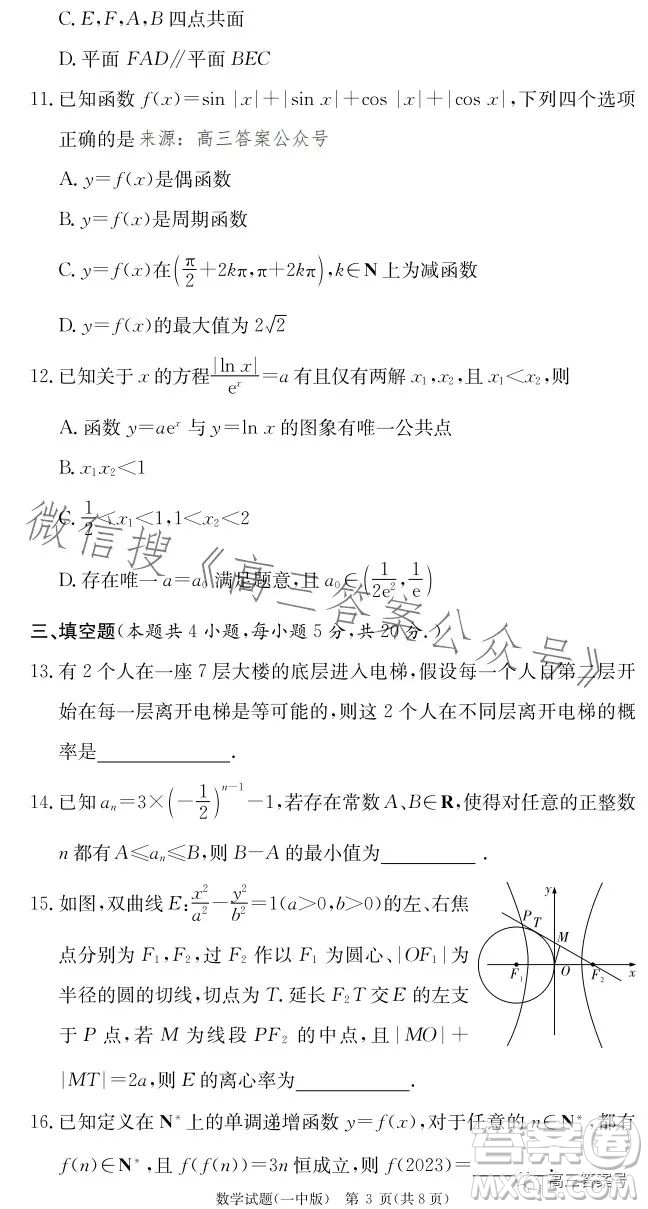 C. E,F,A,B 四点共面
D. 平面 FAD∥平面 BEC
11. 已知函数 f(x)=sin |x|+|sin x|+cos |x|+|cos x|,下列四个选项
正确的是 来源：高三答案公众号
A. y=f(x)是偶函数
B. y=f(x)是周期函数
C. y=f(x)在(π/2+2kπ,π+2kπ),k∈N 上为减函数
D. y=f(x)的最大值为 2√2
12. 已知关于 x 的方程|ln x|/eˣ=a 有且仅有两解 x₁,x₂,且 x₁<x₂,则
A. 函数 y=aeˣ 与 y=ln x 的图象有唯一公共点
B. x₁x₂<1
C. 1/2<x₁<1,1<x₂<2
D. 存在唯一 a=a₀ 满足题意,且 a₀∈(1/2e²,1/e)
三、填空题(本题共 4 小题,每小题 5 分,共 20 分.)
13. 有 2 个人在一座 7 层大楼的底层进入电梯,假设每一个人自第二层开
始在每一层离开电梯是等可能的,则这 2 个人在不同层离开电梯的概
率是____________.
14. 已知 aₙ=3×(−1/2)ⁿ⁻¹−1,若存在常数 A、B∈R,使得对任意的正整数
n 都有 A≤aₙ≤B,则 B−A 的最小值为____________.
15. 如图,双曲线 E:x²/a²−y²/b²=1(a>0,b>0)的左、右焦
点分别为 F₁,F₂,过 F₂ 作以 F₁ 为圆心、|OF₁|为
半径的圆的切线,切点为 T. 延长 F₂T 交 E 的左支
于 P 点,若 M 为线段 PF₂ 的中点,且|MO|+
|MT|=2a,则 E 的离心率为____________.
y
P
T
M
F₁
O
F₂
x
16. 已知定义在 N* 上的单调递增函数 y=f(x),对于任意的 n∈N*,都有
f(n)∈N*,且 f(f(n))=3n 恒成立,则 f(2023)=____________.
数学试题(一中版) 第 3 页(共 8 页)
微信搜《高三答案公众号》
答案圈
高三答案号